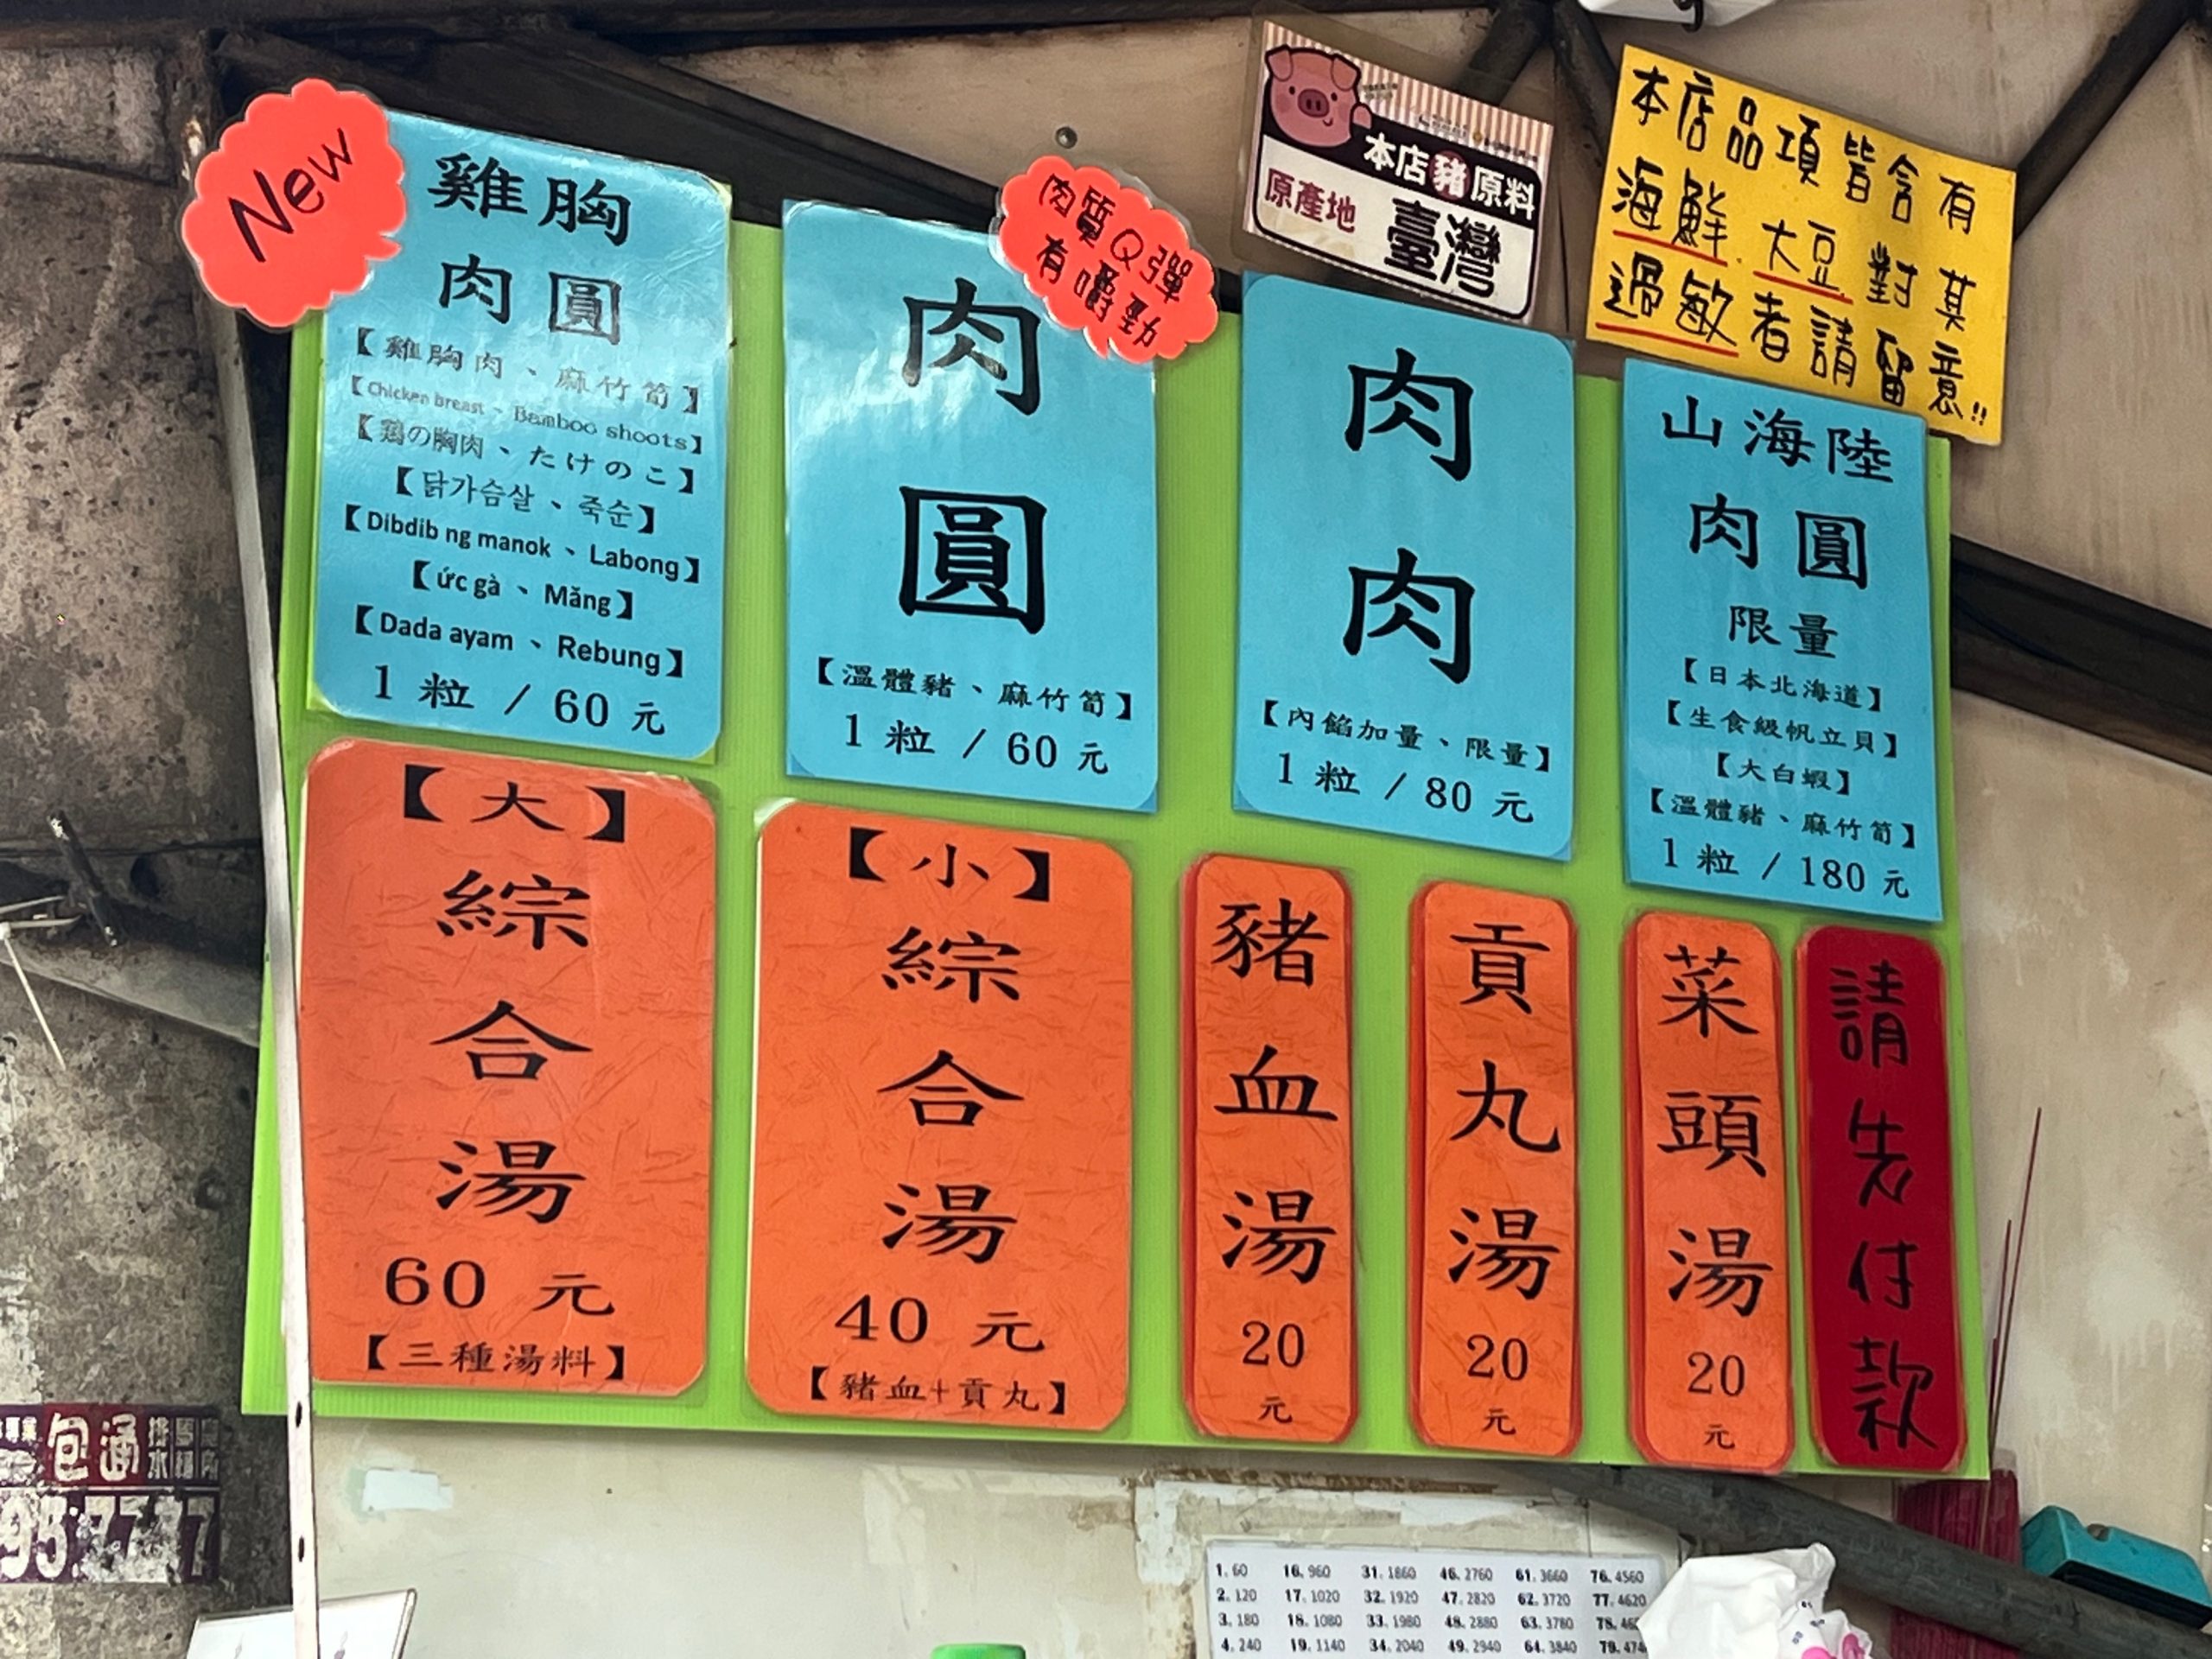 New
雞胸
肉圓
【雞胸肉、麻竹筍】
【Chicken breast、Bamboo shoots】
【鶏の胸肉、たけのこ】
【닭가슴살、죽순】
【Dibdib ng manok、Labong】
【ức gà、Măng】
【Dada ayam、Rebung】
1粒/60元
肉質Q彈
有嚼勁
肉圓
【溫體豬、麻竹筍】
1粒/60元
本店豬原料
原產地 臺灣
肉肉
【內餡加量、限量】
1粒/80元
本店品項皆含有
海鮮 大豆 對其
過敏者請留意!!
山海陸
肉圓
限量
【日本北海道】
【生食級帆立貝】
【大白蝦】
【溫體豬、麻竹筍】
1粒/180元
【大】
綜合湯
60元
【三種湯料】
【小】
綜合湯
40元
【豬血+貢丸】
豬血湯
20
元
貢丸湯
20
元
菜頭湯
20
元
請先付款
包通
1. 60 16. 960 31. 1860 46. 2760 61. 3660 76. 4560
2. 120 17. 1020 32. 1920 47. 2820 62. 3720 77. 4620
3. 180 18. 1080 33. 1980 48. 2880 63. 3780 78.
4. 240 19. 1140 34. 2040 49. 2940 64. 3840 79.